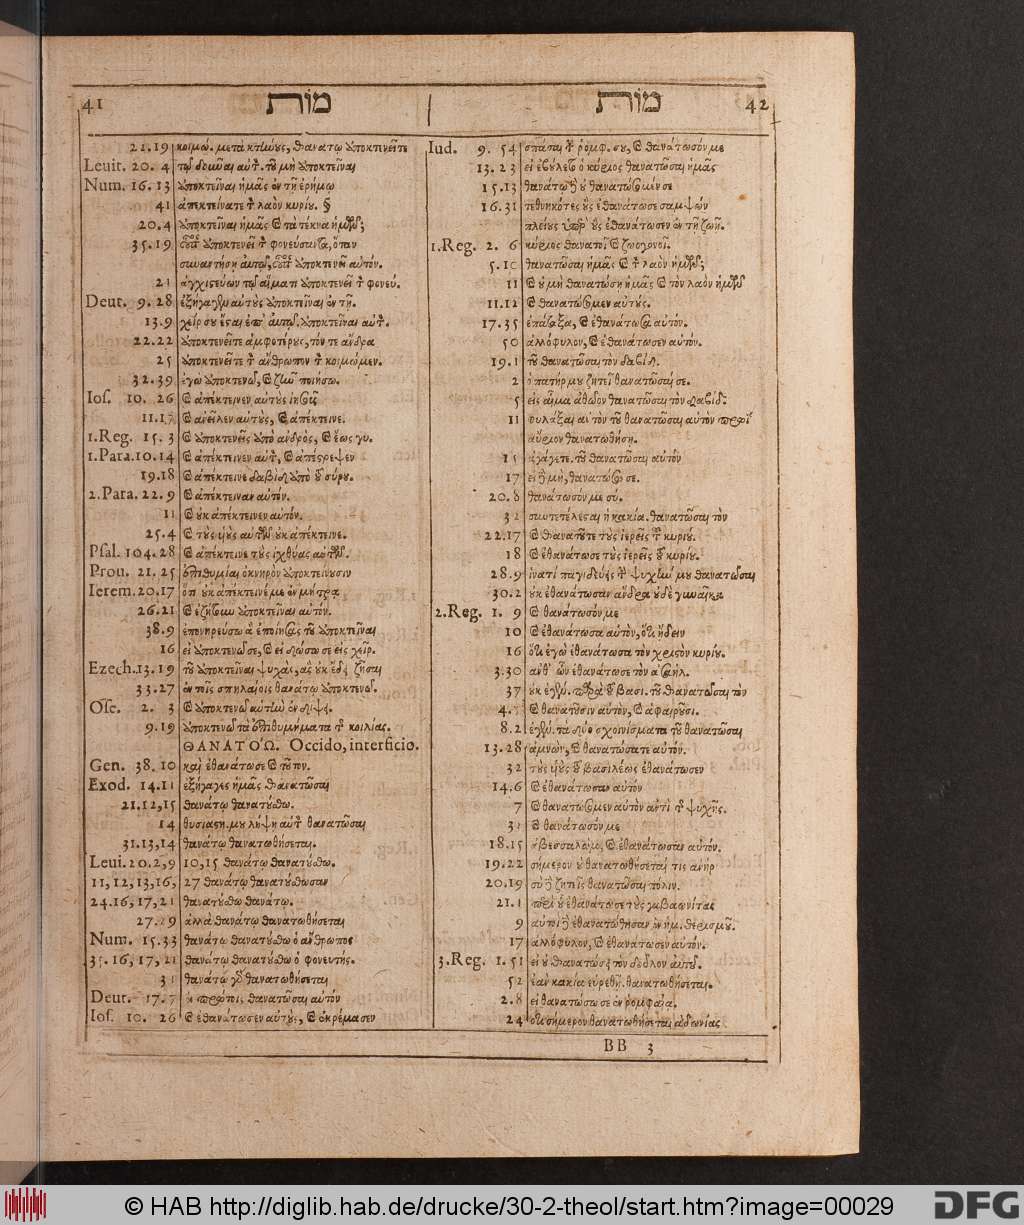 41 מורת
מורת 42
22.19 κοιμώ. μετὰ κτήνους, θανάτῳ ἀποκτενεῖτε
Leuit. 20. 4 τῷ δοῦναι αὐτ. τοῦ μὴ ἀποκτεῖναι
Num. 16. 13 ἀποκτεῖναι ἡμᾶς ἐν τῇ ἐρήμῳ
41 ἀπεκτείνατε τ λαὸν κυρίου. §
20.4 ἀποκτεῖναι ἡμᾶς καὶ τὰ τέκνα ἡμῶν;
35.19 οὗτος ἀποκτενεῖ τ φονεύσαντα, ὅταν
συναντήσῃ αὐτῷ, οὗτος ἀποκτενεῖ αὐτόν.
21 ἀγχιστεύων τῷ αἵματι ἀποκτενεῖ τ φονεύ.
Deut. 9. 28 ἐξήγαγεν αὐτοὺς ἀποκτεῖναι ἐν τῇ.
13.9 χεῖρ σου ἔσται ἐπ' αὐτῷ, ἀποκτεῖναι αὐτ.
22.22 ἀποκτενεῖτε ἀμφοτέρους, τόν τε ἄνδρα
25 ἀποκτενεῖτε τ ἄνθρωπον τ κοιμώμεν.
32.39 ἐγὼ ἀποκτενῶ, καὶ ζῆν ποιήσω.
Ios. 10. 26 καὶ ἀπέκτεινεν αὐτοὺς ἰησοῦς
11.17 καὶ ἀνεῖλεν αὐτοὺς, καὶ ἀπέκτεινε.
1.Reg. 15. 3 καὶ ἀποκτενεῖς ἀπὸ ἀνδρὸς, καὶ ἕως γυ.
1.Para. 10.14 καὶ ἀπέκτεινεν αὐτ, καὶ ἀπέστρεψεν
19.18 καὶ ἀπέκτεινε δαβὶδ ἀπὸ τοῦ σύρου.
2.Para. 22. 9 καὶ ἀπέκτειναν αὐτόν.
11 καὶ οὐκ ἀπέκτεινεν αὐτόν.
25.4 καὶ τοὺς υἱοὺς αὐτῶν οὐκ ἀπέκτεινε.
Psal. 104.28 καὶ ἀπέκτεινε τοὺς ἰχθύας αὐτῶν.
Prou. 21. 25 ἐπιθυμίαι ὀκνηρὸν ἀποκτείνουσιν
Ierem. 20.17 ὅτι οὐκ ἀπέκτεινέ με ἐν μήτρᾳ
26.21 καὶ ἐζήτουν ἀποκτεῖναι αὐτόν.
38.9 ἐπονηρεύσω ἃ ἐποίησας τοῦ ἀποκτεῖναι
16 εἰ ἀποκτενῶ σε, καὶ εἰ δώσω σε εἰς χεῖρ.
Ezech. 13. 19 τοῦ ἀποκτεῖναι ψυχὰς, ἃς οὐκ ἔδει ζῆσαι
33.27 ἐν τοῖς σπηλαίοις θανάτῳ ἀποκτενῶ.
Ose. 2. 3 καὶ ἀποκτενῶ αὐτὴν ἐν δίψει.
9.19 ἀποκτενῶ τὰ ἐπιθυμήματα τ κοιλίας.
ΘΑΝΑΤΟΏ. Occido, interficio.
Gen. 38. 10 καὶ ἐθανάτωσε καὶ τοῦτον.
Exod. 14.11 ἐξήγαγες ἡμᾶς θανατῶσαι
21.12,15 θανάτῳ θανατούσθω.
14 θυσιαστη. μου λήψῃ αὐτ θανατῶσαι
31.13,14 θανάτῳ θανατωθήσεται.
Leui. 20.2,9 10,15 θανάτῳ θανατούσθω.
11, 12, 13, 16, 27 θανάτῳ θανατούσθωσαν
24.16, 17, 21 θανατούσθω θανάτῳ.
27.29 ἀλλὰ θανάτῳ θανατωθήσεται
Num. 15.33 θανάτῳ θανατούσθω ὁ ἄνθρωπος
35. 16, 17, 21 θανάτῳ θανατούσθω ὁ φονευτής.
31 θανάτῳ γὰρ θανατωθήσεται
Deut. 17.7 θανατῶσαι αὐτόν
Ios. 10. 26 καὶ ἐθανάτωσεν αὐτοὺς, καὶ ἐκρέμασεν
Iud. 9. 54 σπάσαι τ ῥομφ. σου, καὶ θανάτωσόν με
13. 23 εἰ ἐβούλετο ὁ κύριος θανατῶσαι ἡμᾶς
15.13 θανάτῳ δὲ οὐ θανατώσωμέν σε
16.31 τεθνηκότες οὓς ἐθανάτωσε σαμψών
πλείους ὑπὲρ οὓς ἐθανάτωσεν ἐν τῇ ζωῇ.
1.Reg. 2. 6 κύριος θανατοῖ, καὶ ζωογονεῖ.
5.10 θανατῶσαι ἡμᾶς καὶ τ λαὸν ἡμῶν;
11 καὶ οὐ μὴ θανατώσῃ ἡμᾶς καὶ τὸν λαὸν ἡμῶν
11.12 καὶ θανατώσομεν αὐτούς.
17.35 ἐπάταξα, καὶ ἐθανάτωσα αὐτόν.
50 ἀλλόφυλον, καὶ ἐθανάτωσεν αὐτόν.
19.1 τοῦ θανατῶσαι τὸν δαβίδ.
2 ὁ πατήρ μου ζητεῖ θανατῶσαί σε.
5 εἰς αἷμα ἀθῶον θανατῶσαι τὸν δαβίδ;
11 φυλάξαι αὐτὸν τοῦ θανατῶσαι αὐτὸν πρωΐ
αὔριον θανατωθήσῃ.
15 ἀγάγετε. τοῦ θανατῶσαι αὐτόν
17 εἰ δὲ μὴ, θανατώσω σε.
20. 8 θανάτωσόν με σύ.
32 συντετέλεσται ἡ κακία. θανατῶσαι τόν
22.17 καὶ θανατοῦτε τοὺς ἱερεῖς τοῦ κυρίου.
18 καὶ ἐθανάτωσε τοὺς ἱερεῖς τοῦ κυρίου.
28.9 ἱνατί παγιδεύεις τ ψυχήν μου θανατῶσαι
30.2 οὐκ ἐθανάτωσαν ἄνδρα οὐδὲ γυναῖκα
2.Reg. 1. 9 καὶ θανάτωσόν με
10 καὶ ἐθανάτωσα αὐτὸν, ὅτι ᾔδειν
16 ὅτι ἐγὼ ἐθανάτωσα τὸν χριστὸν κυρίου.
3.30 ἀνθ' ὧν ἐθανάτωσε τὸν ἀσαήλ.
37 οὐκ ἐγέν. παρὰ τοῦ βασι. τοῦ θανατῶσαι τόν
4.7 καὶ θανατοῦσιν αὐτὸν, καὶ ἀφαιροῦσι.
8.2 ἐγέν. τὰ δύο σχοινίσματα τοῦ θανατῶσαι
13.28 ἀμνὼν, καὶ θανατώσατε αὐτόν.
32 τοὺς υἱοὺς τοῦ βασιλέως ἐθανάτωσεν
14.6 καὶ ἐθανάτωσεν αὐτόν
7 καὶ θανατώσομεν αὐτὸν ἀντὶ τ ψυχῆς.
32 καὶ θανάτωσόν με
18.15 ἀβεσσαλώμ, καὶ ἐθανάτωσαν αὐτόν.
19.22 σήμερον οὐ θανατωθήσεταί τις ἀνήρ
20.19 σὺ δὲ ζητεῖς θανατῶσαι πόλιν.
21.1 περὶ οὗ ἐθανάτωσε τοὺς γαβαωνίτας
9 αὐτοὶ δὲ ἐθανατώθησαν ἐν ἡμ. θερισμοῦ.
17 ἀλλόφυλον, καὶ ἐθανάτωσεν αὐτόν.
3.Reg. 1.51 εἰ οὐ θανατώσει τὸν δοῦλον αὐτοῦ.
52 ἐὰν κακία εὑρεθῇ. θανατωθήσεται.
2.8 εἰ θανατώσω σε ἐν ῥομφαίᾳ.
24 ὅτι σήμερον θανατωθήσεται ἀδωνίας
BB 3
© HAB http://diglib.hab.de/drucke/30-2-theol/start.htm?image=00029
DFG